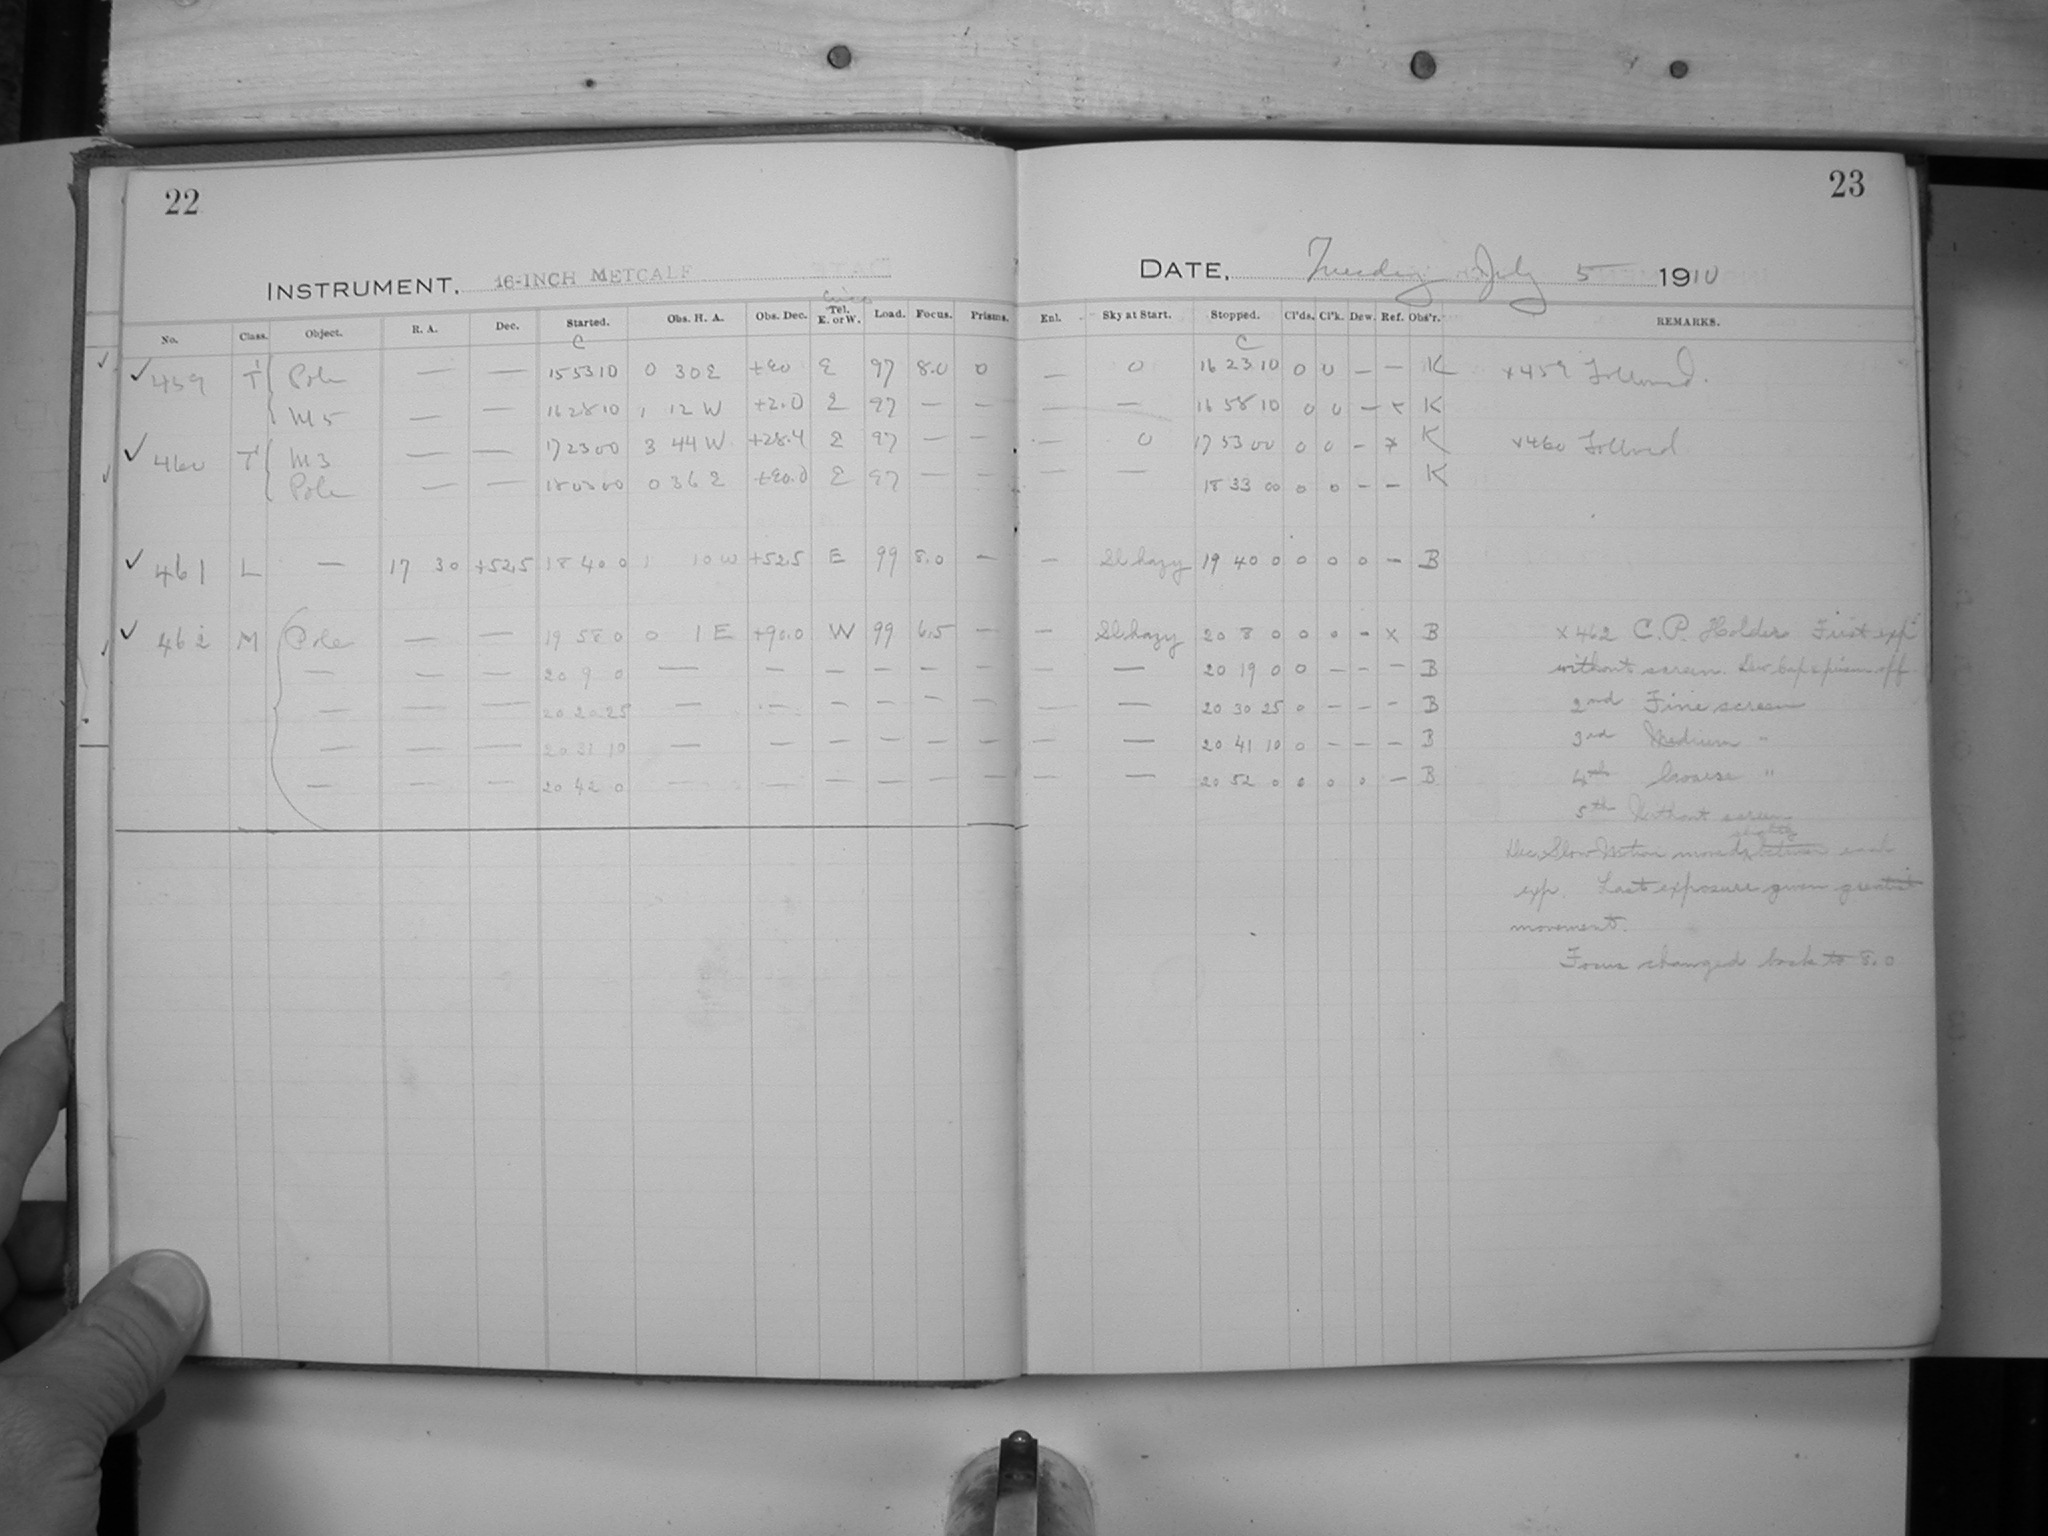 22
INSTRUMENT. 16-INCH METCALF
No. Class. Object. R. A. Dec. Started. Obs. H. A. Obs. Dec. Tel. E. or W. Load. Focus. Prisms.
C
✓ 459 T Pole — — 15 53 10 0 30 E +90 E 97 8.0 0
M 5 — — 16 28 10 1 12 W +2.0 E 97 — —
✓ 460 T M 3 — — 17 23 00 3 44 W +28.4 E 97 — —
Pole — — 18 03 00 0 36 E +90.0 E 97 — —
✓ 461 L — 17 30 +52.5 18 40 0 1 10 W +52.5 E 99 8.0 —
✓ 462 M Pole — — 19 58 0 0 1 E +90.0 W 99 6.5 —
— — — 20 9 0 — — — — — —
— — — 20 20 25 — — — — — —
— — — 20 31 10 — — — — — —
— — — 20 42 0 — — — — — —
23
DATE, Tuesday July 5 1910
Enl. Sky at Start. Stopped. Cl'ds. Cl'k. Dew. Ref. Obs'r. REMARKS.
C
— 0 16 23 10 0 0 — — K x459 Followed.
— — 16 58 10 0 0 — x K
— 0 17 53 00 0 0 — x K x460 Followed
— — 18 33 00 0 0 — — K
— Sl. hazy 19 40 0 0 0 0 — B
— Sl. hazy 20 8 0 0 0 — x B x462 C.P. Holders First exp.
— 20 19 0 0 — — — B without screen. Dew cap & prism off
— — 20 30 25 0 — — — B 2nd Fine screen
— — 20 41 10 0 — — — B 3rd Medium "
— — 20 52 0 0 0 0 — B 4th Coarse "
5th Without screen
slightly
Dec. Slow Motion moved between each
exp. Last exposure given greatest
movement.
Focus changed back to 8.0